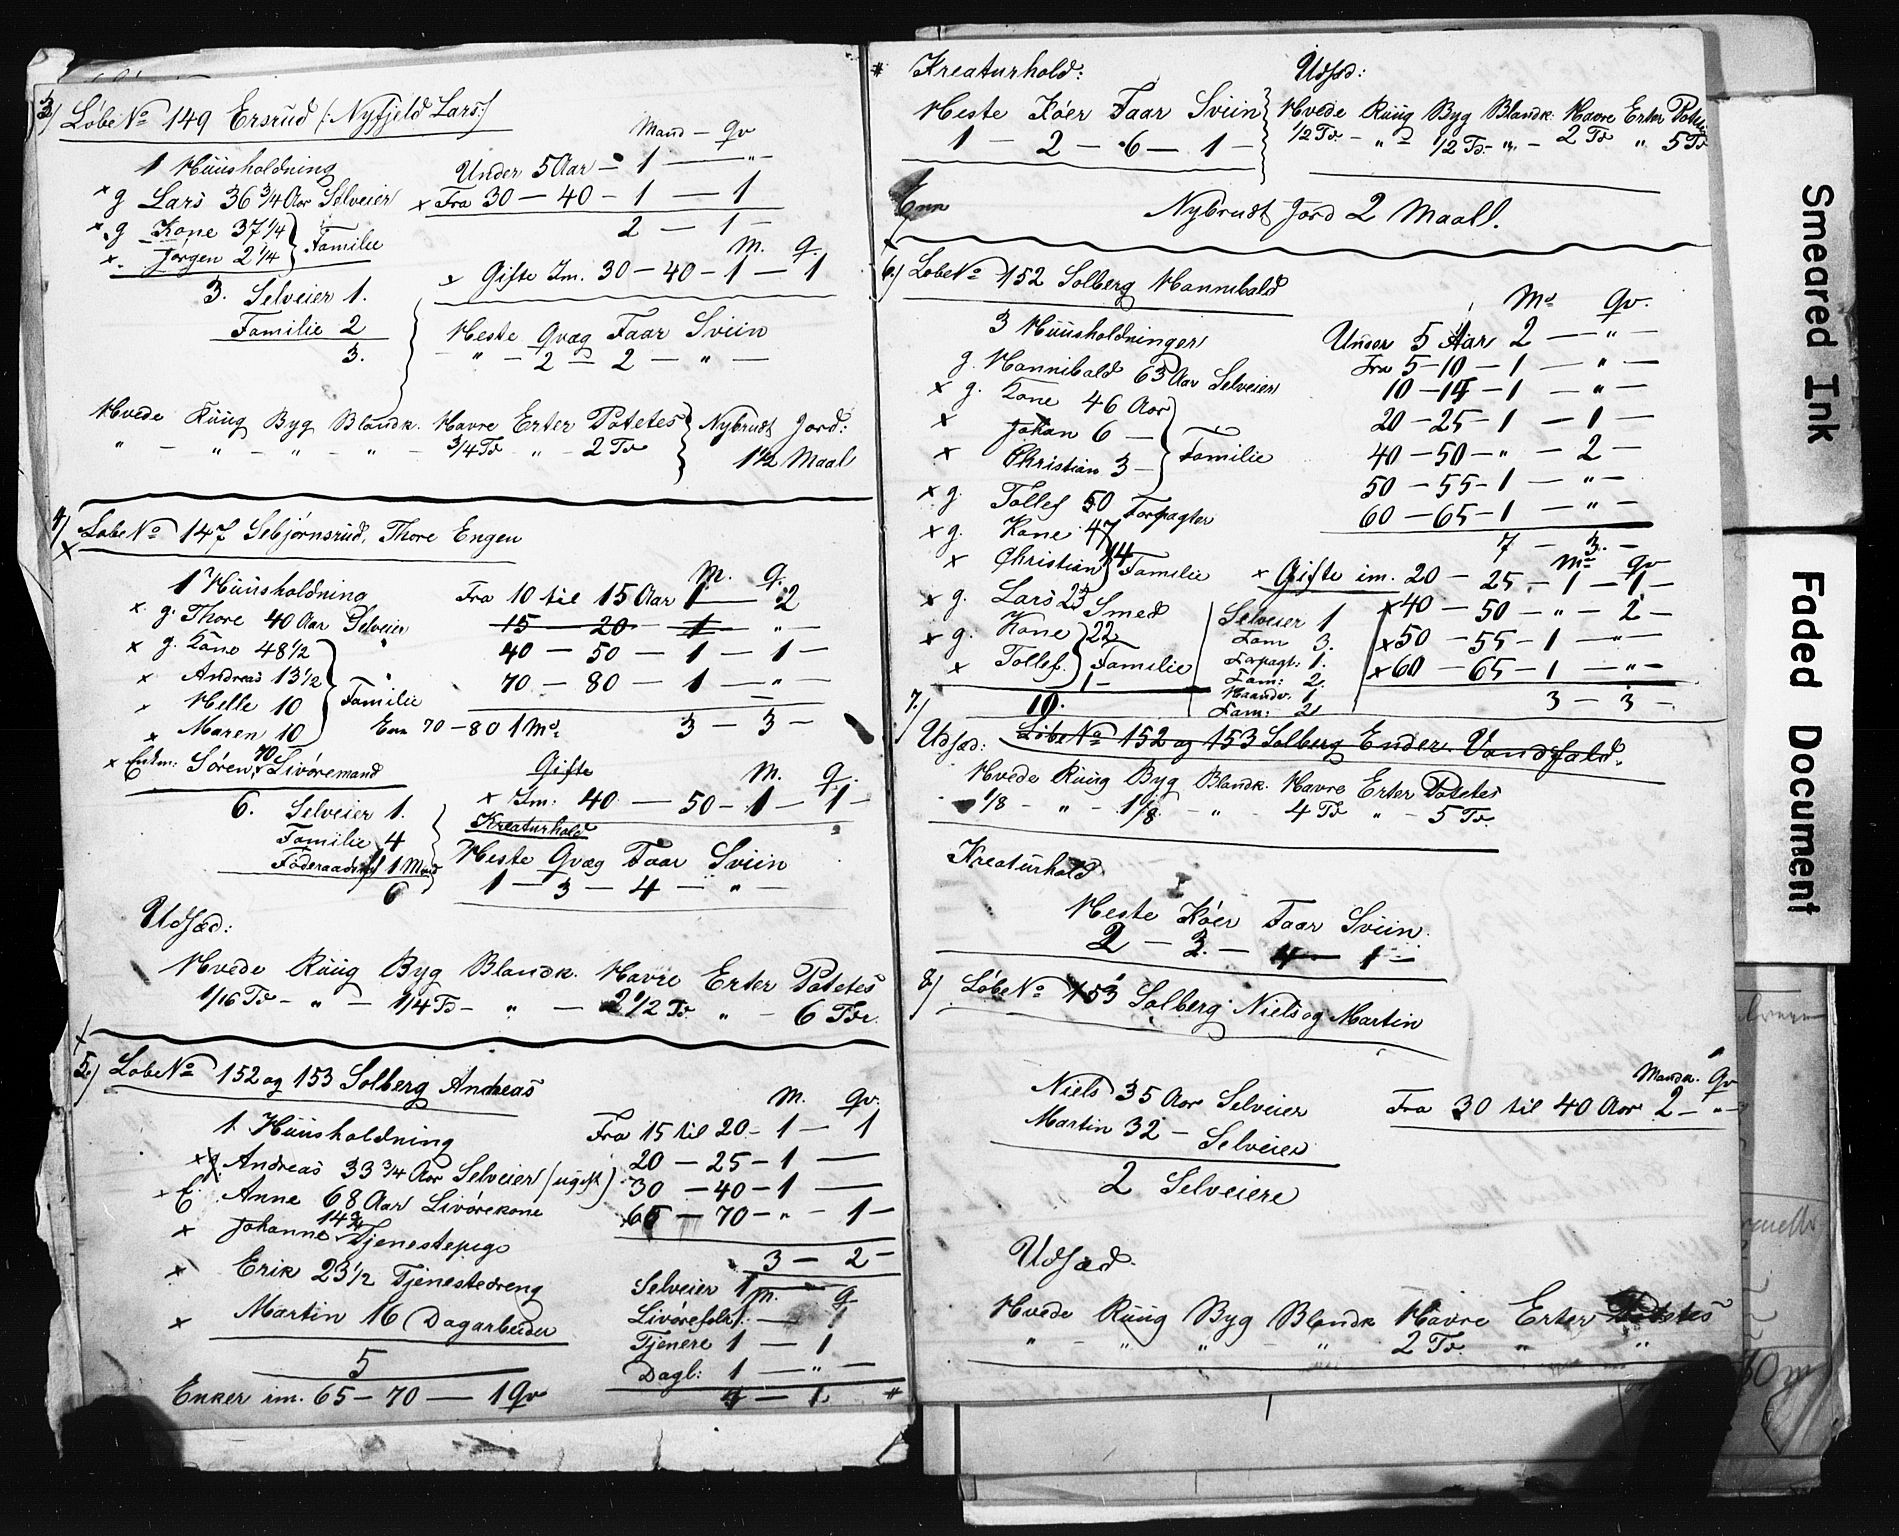 3) Løbe No 149 Ersrud /: Nyfjeld Lars :/
Mand — Qv
1 Huusholdning
Under 5 Aar — 1 — „ —
x g Lars 36 3/4 Aar Selveier
x Fra 30 — 40 — 1 — 1
x g Kone 37 1/4 } Familie
2 — 1 —
x Jørgen 2 1/4
M. Q.
x Gifte Im. 30 — 40 — 1 — 1
3. Selveier 1.
Familie 2
3.
Heste Qvæg Faar Sviin
„ — 2 — 2 — „ —
Hvede Ruug Byg Blandk. Havre Erter Potetes } Nybrudt Jord:
„ — „ — „ — „ — 3/4 Tø „ — 2 Tø 1 1/2 Maal
4) Løbe No 147 Sebjørnsrud, Thore Engen
x
1 Huusholdning
M. Q.
Fra 10 til 15 Aar 1 — 2
x g. Thore 40 Aar Selveier
15 — 20 — 1 — „ —
x g. Kone 48 1/2
40 — 50 — 1 — 1 —
x Andreas 13 1/2 } Familie
70 — 80 — 1 — „ —
x Helle 10
x Maren 10
Enn 70 — 80 1 Md
3 — 3 —
x Enkem: Søren, 70 Livøremand
Gifte M. Q.
x Im: 40 — 50 — 1 — 1 —
6. Selveier 1.
Familie 4
Føderaadsfol 1 Mand
6
Kreaturhold
Heste Qvæg Faar Sviin
1 — 3 — 4 — „ —
Udsæd:
Hvede Ruug Byg Blandk. Havre Erter Potetes
1/16 Tø — „ — 1/4 Tø — „ — 2 1/2 Tø „ — 6 Tdr.
x
5.) Løbe No 152 og 153 Solberg Andreas
M. Qv.
1. Huusholdning
Fra 15 til 20 — 1 — 1
x g. Andreas 33 3/4 Aar Selveier (ugift)
20 — 25 — 1 —
x E. Anne 68 Aar Livørekone
30 — 40 — 1 —
x Johanne 14 3/4 Tjenestepige
65 — 70 — „ — 1 —
3 — 2 —
x Erik 23 1/2 Tjenestedreng
Selveier 1 M. Q
x Martin 16 Dagarbeider
Livørefolk — 1
Tjenere 1 — 1
Dagl: 1 — „ —
5
Enker im. 65 — 70 — 1 Qv
#
# Kreaturhold: Udsæd:
Heste Køer Faar Sviin } Hvede Ruug Byg Blandk. Havre Erter
1 — 2 — 6 — 1 — 1/2 Tø. — „ — 1/2 Tø. — „ — 2 Tø „ 5 Tø
Enn
Nybrudt Jord 2 Maal.
x
6.) Løbe No 152 Solberg Hannibald
Md Qv.
3 Huusholdninger
Under 5 Aar 2 — „ —
g. Hannibald 63 Aar Selveier
Fra 5—10 — 1 — „ —
x g. Kone 46 Aar
10—14 — 1 — „ —
x Johan 6 — } Familie
20—25—1 — 1 —
x Christian 3 —
40—50—„ — 2 —
x g. Tollef 50 Forpagter
50 — 55 — 1 — „ —
x g. Kone 47
60 — 65 — 1 — „ —
7 — 3. —
x Christian 14 } Familie
Md Qv
x Gifte im. 20 — 25 — 1 — 1 —
x g. Lars 23 Smed
Selveier 1
x 40 — 50 — „ — 2 —
x g. Kone 22 } Familie
Fam 3.
x 50 — 55 — 1 — „ —
x Tollef 1 —
Forpagt: 1.
x 60 — 65 — 1 — „ —
Fam: 2.
Haandv. 1
10.
Fam: 2
3 — 3 —
7.)
Løbe No 152 og 153 Solberg Ender. Vandfald.
Udsæd:
Hvede Ruug Byg Blandk. Havre Erter Potetes
1/8 — „ — 1/8 „ — 4 Tø „ — 5 Tø.
Kreaturhold
Heste Køer Faar Sviin.
2 — 3. — 4 — 1 —
8) Løbe No 153 Solberg Niels og Martin
Mandk. Qv
Niels 35 Aar Selveier
Fra 30 til 40 Aar 2 — „ —
Martin 32 — Selveier
2 Selveiere
Udsæd.
Hvede Ruug Byg Blandk Havre Erter Potetes
„ „ „ „ 2 Tø. „ „
Smeared Ink
Faded Document